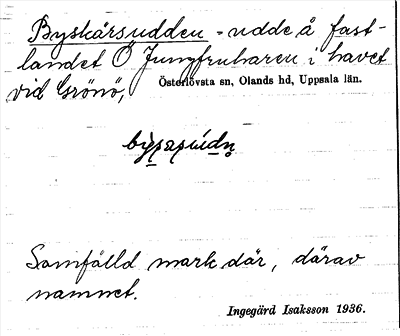 Byskärsudden - udde å fast-
landet Ö Jungfruharen i havet
vid Grönö,
Österlövsta sn, Olands hd, Uppsala län.
Samfälld mark där, därav
namnet.
Ingegärd Isaksson 1936.